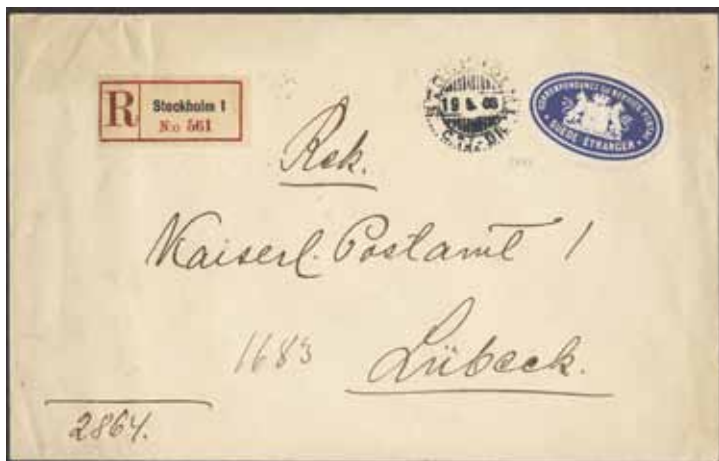 R Stockholm 1
No 561
19 5. 06
CORRESPONDANCE DU SERVICE POSTAL
SUÈDE ETRANGER
Rek.
Kaiserl. Postamt 1
1683
Lübeck.
2864.